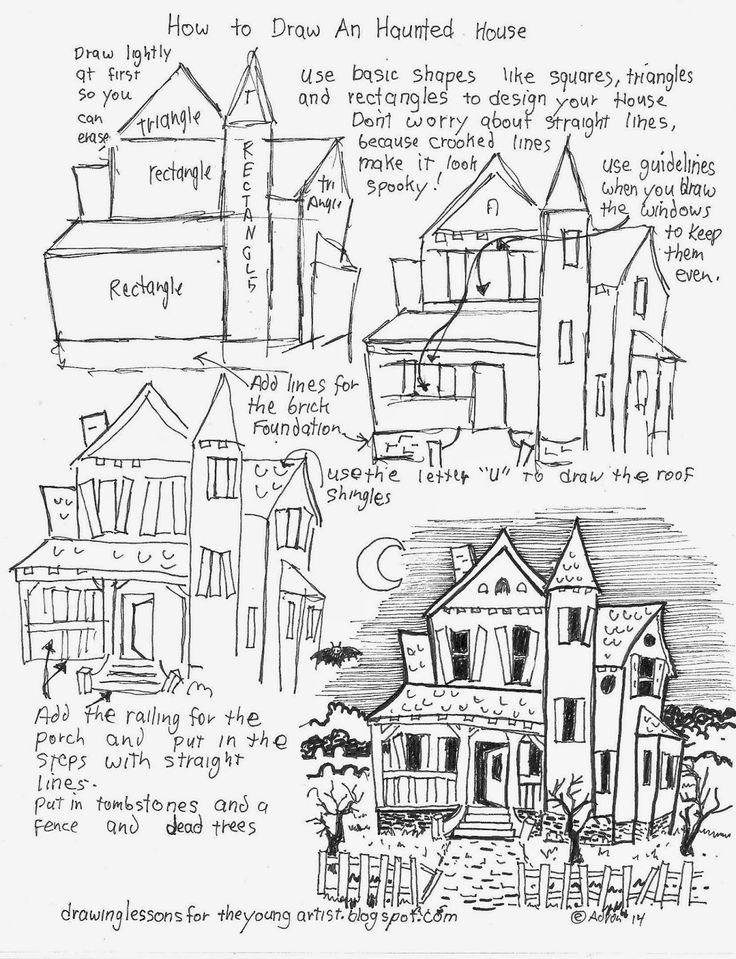 How to Draw An Haunted House
Draw lightly
at first
so you
can
erase
use basic shapes like squares, triangles
and rectangles to design your House
Dont worry about straight lines,
because crooked lines
make it look
spooky!
triangle
T
rectangle
RECTANGLE
tri
Angle
Rectangle
use guidelines
when you draw
the windows
to keep
them
even.
Add lines for
the brick
Foundation
use the letter "U" to draw the roof
shingles
Add the railing for the
porch and put in the
steps with straight
lines.
put in tombstones and a
fence and dead trees
drawinglessonsfortheyoungartist.blogspot.com